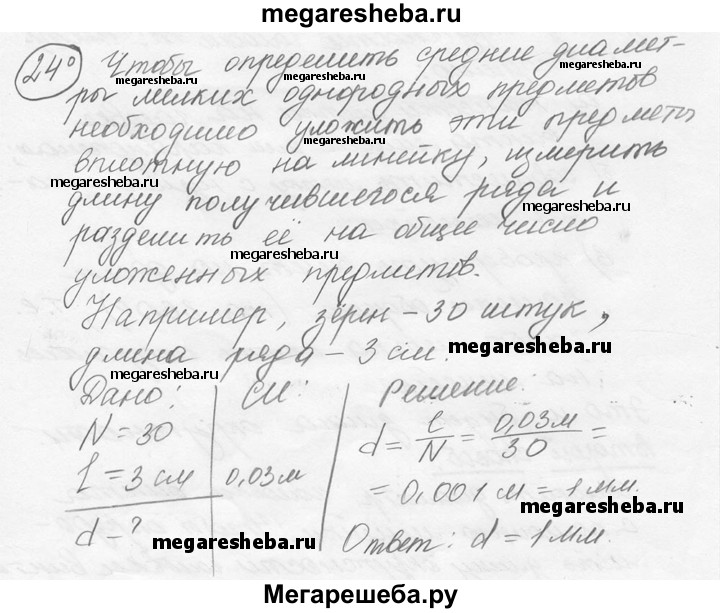 megaresheba.ru
24° Чтобы определить средние диамет-
ры мелких однородных предметов
необходимо уложить эти предметы
вплотную на линейку, измерить
длину получившегося ряда и
разделить её на общее число
уложенных предметов.
Например, зёрен – 30 штук,
длина ряда – 3 см.
Дано: СИ: Решение:
N = 30
d = l/N = 0,03м/30 =
l = 3 см 0,03м
= 0,001 м = 1 мм.
d = ?
Ответ: d = 1 мм.
megaresheba.ru
megaresheba.ru
megaresheba.ru
megaresheba.ru
megaresheba.ru
megaresheba.ru
megaresheba.ru
megaresheba.ru
megaresheba.ru
megaresheba.ru
Мегарешеба.ру